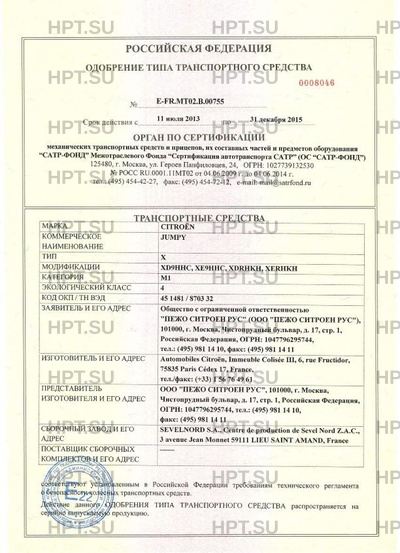 РОССИЙСКАЯ ФЕДЕРАЦИЯ
ОДОБРЕНИЕ ТИПА ТРАНСПОРТНОГО СРЕДСТВА
0008046
E-FR.MT02.B.00755
Срок действия с 11 июля 2013 по 31 декабря 2015
ОРГАН ПО СЕРТИФИКАЦИИ
механических транспортных средств и прицепов, их составных частей и предметов оборудования
"САТР-ФОНД" Межотраслевого Фонда "Сертификация автотранспорта САТР" (ОС "САТР-ФОНД")
125480, г. Москва, ул. Героев Панфиловцев, 24, ОГРН: 1027739132530
№ РОСС RU.0001.11МТ02 от 04.06.2009 г. до 01.06.2014 г.
тел.: (495) 454-42-27, факс: (495) 454-72-12, e-mail: mail@satrfond.ru
ТРАНСПОРТНЫЕ СРЕДСТВА
МАРКА CITROËN
КОММЕРЧЕСКОЕ НАИМЕНОВАНИЕ JUMPY
ТИП X
МОДИФИКАЦИИ XD9HHC, XE9HHC, XDRHKH, XERHKH
КАТЕГОРИЯ M1
ЭКОЛОГИЧЕСКИЙ КЛАСС 4
КОД ОКП / ТН ВЭД 45 1481 / 8703 32
ЗАЯВИТЕЛЬ И ЕГО АДРЕС Общество с ограниченной ответственностью
"ПЕЖО СИТРОЕН РУС" (ООО "ПЕЖО СИТРОЕН РУС"),
101000, г. Москва, Чистопрудный бульвар, д. 17, стр. 1,
Российская Федерация, ОГРН: 1047796295744,
тел.: (495) 981 14 10, факс: (495) 981 14 11
ИЗГОТОВИТЕЛЬ И ЕГО АДРЕС Automobiles Citroën, Immeuble Colisée III, 6, rue Fructidor,
75835 Paris Cédex 17, France.
тел./факс: (+33) 1 56 76 49 61
ПРЕДСТАВИТЕЛЬ ИЗГОТОВИТЕЛЯ И ЕГО АДРЕС ООО "ПЕЖО СИТРОЕН РУС", 101000, г. Москва,
Чистопрудный бульвар, д. 17, стр. 1, Российская Федерация,
ОГРН: 1047796295744, тел.: (495) 981 14 10,
факс: (495) 981 14 11
СБОРОЧНЫЙ ЗАВОД И ЕГО АДРЕС SEVELNORD S.A., Centre de production de Sevel Nord Z.A.C.,
3 avenue Jean Monnet 59111 LIEU SAINT AMAND, France
ПОСТАВЩИК СБОРОЧНЫХ КОМПЛЕКТОВ И ЕГО АДРЕС ------
соответствуют установленным в Российской Федерации требованиям технического регламента
о безопасности колесных транспортных средств.
Действие данного ОДОБРЕНИЯ ТИПА ТРАНСПОРТНОГО СРЕДСТВА распространяется на
серийно выпускаемую продукцию.
E22
HPT.SU